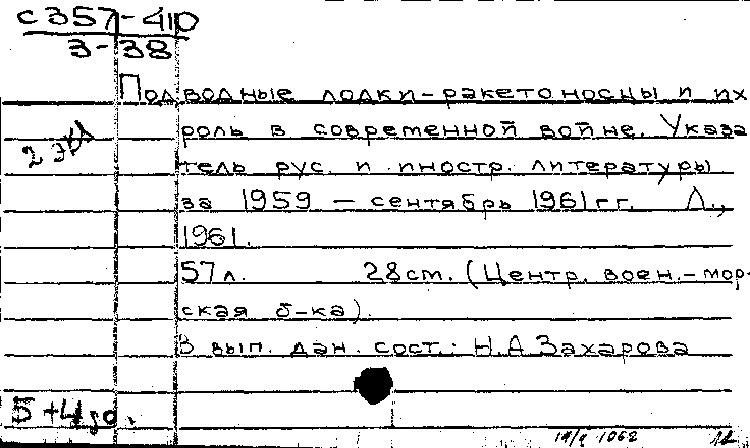 с 357-410
3-38
Подводные лодки-ракетоносцы и их
2 экз
роль в современной войне. Указа
тель рус. и иностр. литературы
за 1959 - сентябрь 1961 гг. Л.,
1961.
57 л. 28 см. (Центр. воен.-мор-
ская б-ка).
В вып. дан. сост.: Н.А Захарова